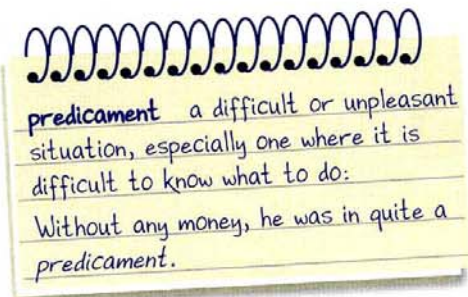 predicament a difficult or unpleasant
situation, especially one where it is
difficult to know what to do:
Without any money, he was in quite a
predicament.